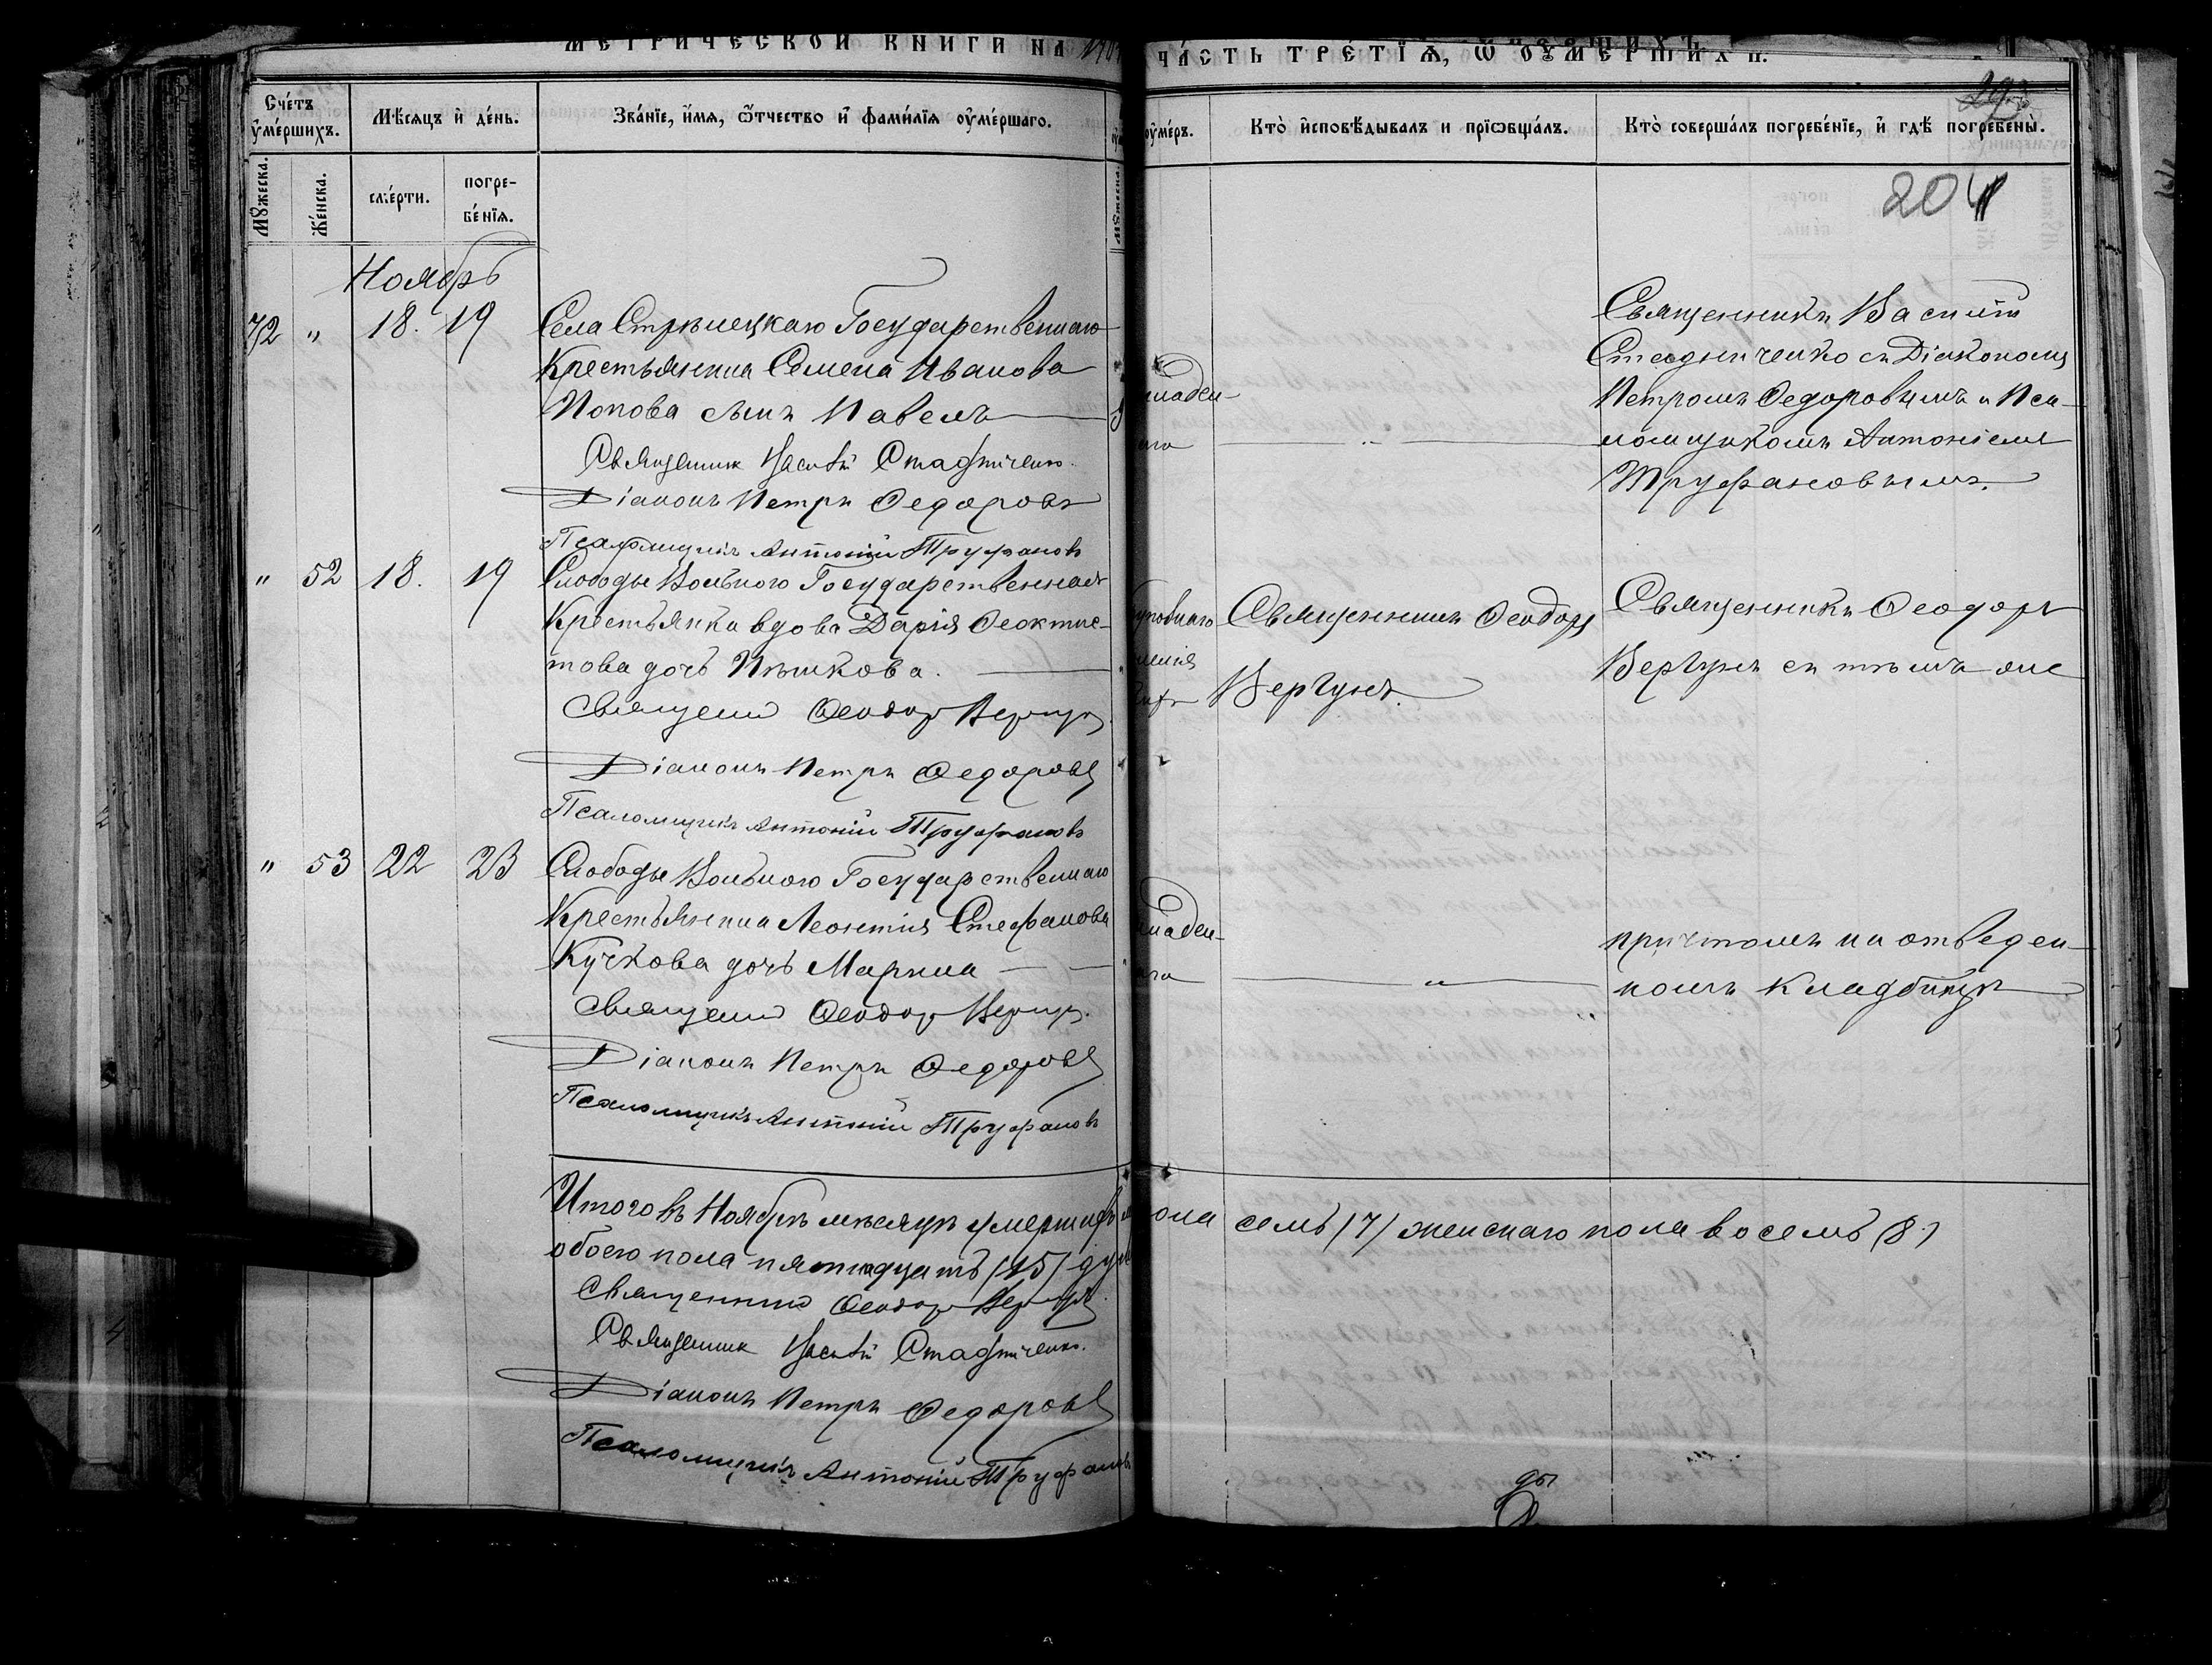 МЕТРИЧЕСКОЙ КНИГИ НА
ЧАСТЬ ТРЕТІѦ, Ѡ ОУМЕРШИХЪ.
Счетъ оумершихъ.
Мѣсѧцъ и день.
Званїе, имѧ, ѿчество и фамилїѧ оумершаго.
оумеръ.
Кто исповѣдывалъ и прїѡбщалъ.
Кто совершалъ погребенїе, и гдѣ погребены.
Мужеска.
Женска.
смерти.
погре-
бенїѧ.
204
Ноябрь
72 " 18. 19
Села Стрѣлецкаго Государственнаго
Крестьянина Семена Иванова
Попова сынъ Павелъ
Священник Василій Стадниченко.
Діаконъ Петръ Ѳедоровъ
Псаломщикъ Антоній Труфановъ
младен-
"
Священникъ Василій
Стадниченко съ Діакономъ
Петромъ Ѳедоровымъ и Пса-
ломщикомъ Антоніемъ
Труфановымъ.
" 52 18. 19
Слободы Вольного Государственная
Крестьянка вдова Дарія Ѳеоктис-
това дочь Пѣшкова.
Священник Ѳеодор Вергун
Діаконъ Петръ Ѳедоровъ
Псаломщикъ Антоній Труфановъ
Священникъ Ѳеодоръ
Вергунъ.
Священникъ Ѳеодоръ
Вергунъ съ тѣмъ же
" 53 22 23
Слободы Вольного Государственнаго
Крестьянина Леонтія Стефанова
Кучкова дочь Марина
Священник Ѳеодор Вергун.
Діаконъ Петръ Ѳедоровъ
Псаломщикъ Антоній Труфановъ
младен-
"
причтомъ на отведен-
номъ кладбищѣ
Итого въ Ноябрѣ мѣсяцѣ умершихъ
обоего пола пятнадцать (15) душ
пола семь (7) женскаго пола восемь (8)
Священник Ѳеодор Вергунъ
Священник Василій Стадниченко.
Діаконъ Петръ Ѳедоровъ
Псаломщикъ Антоній Труфановъ